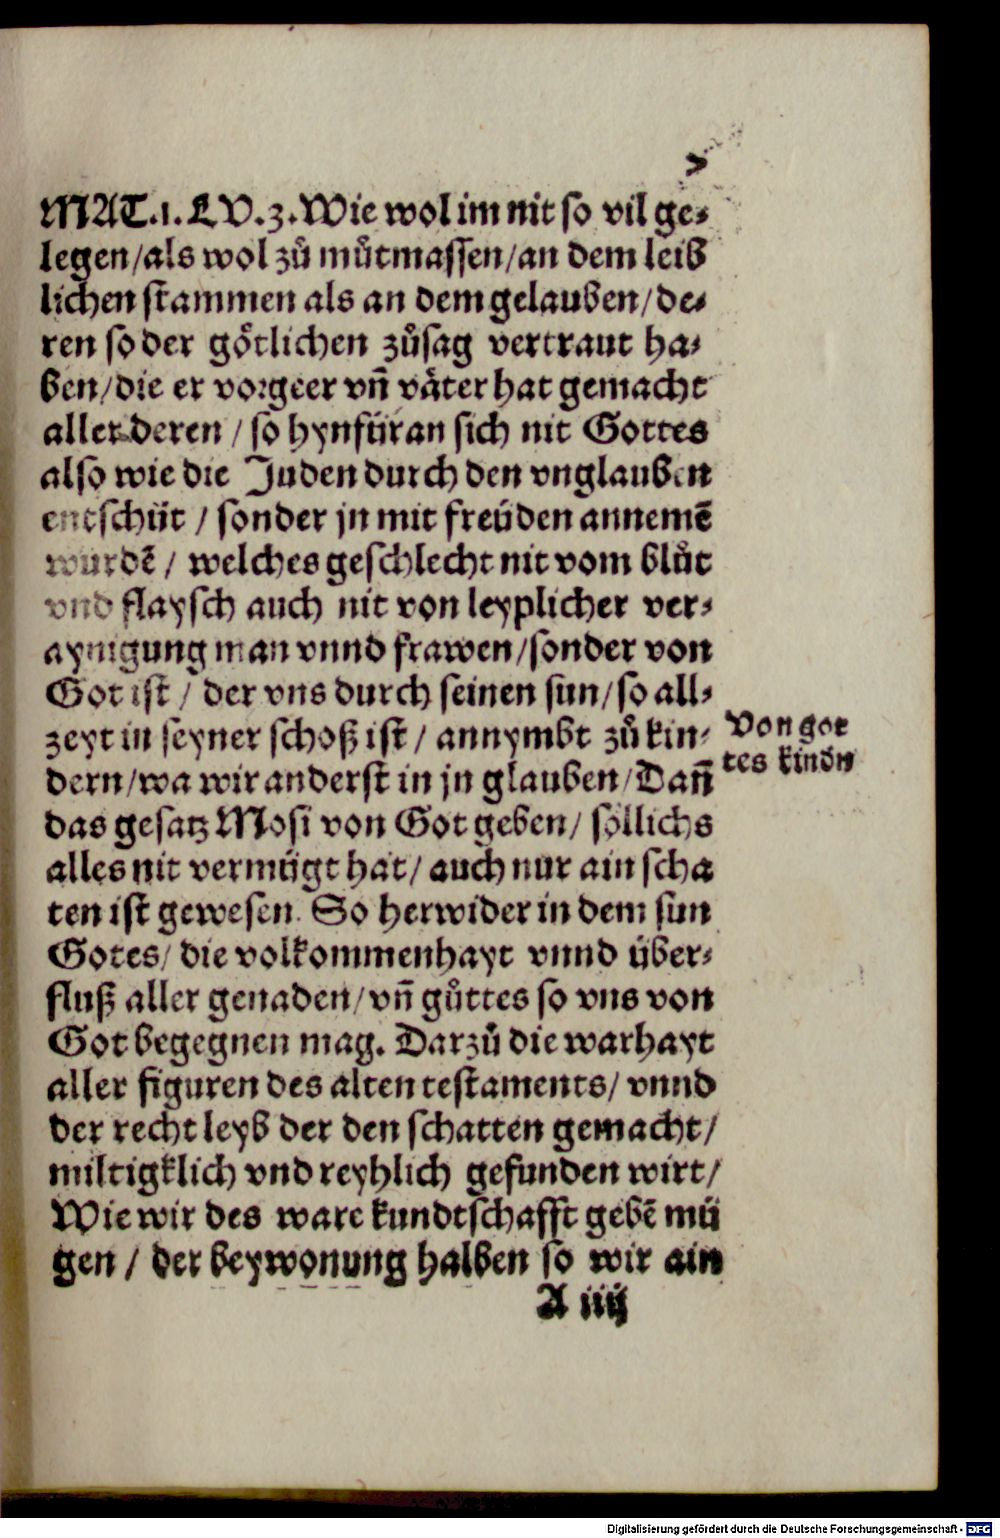 MAT.1.LV.3. Wie wol im nit so vil ge⸗
legen/als wol zů můtmassen/an dem leib
lichen stammen als an dem gelauben/de⸗
ren so der götlichen zůsag vertraut ha⸗
ben/die er vorgeer vñ väter hat gemacht
aller deren / so hynfüran sich nit Gottes
also wie die Juden durch den vnglauben
entschüt / sonder jn mit freüden annemẽ
wurdẽ / welches geschlecht nit vom blůt
vnd flaysch auch nit von leyplicher ver⸗
aynigung man vnnd frawen/sonder von
Got ist / der vns durch seinen sun/so all⸗
zeyt in seyner schoß ist / annymbt zů kin⸗
dern/wa wir anderst in jn glauben/Dañ
Von got
tes kindn
das gesatz Mosi von Got geben/ söllichs
alles nit vermügt hat/ auch nur ain scha
ten ist gewesen. So herwider in dem sun
Gotes/ die volkommenhayt vnnd über⸗
fluß aller genaden/vñ gůttes so vns von
Got begegnen mag. Darzů die warhayt
aller figuren des alten testaments/ vnnd
der recht leyb der den schatten gemacht/
miltigklich vnd reyhlich gefunden wirt/
Wie wir des ware kundtschafft gebẽ mü
gen / der beywonung halben so wir ain
A iiij
Digitalisierung gefördert durch die Deutsche Forschungsgemeinschaft - DFG